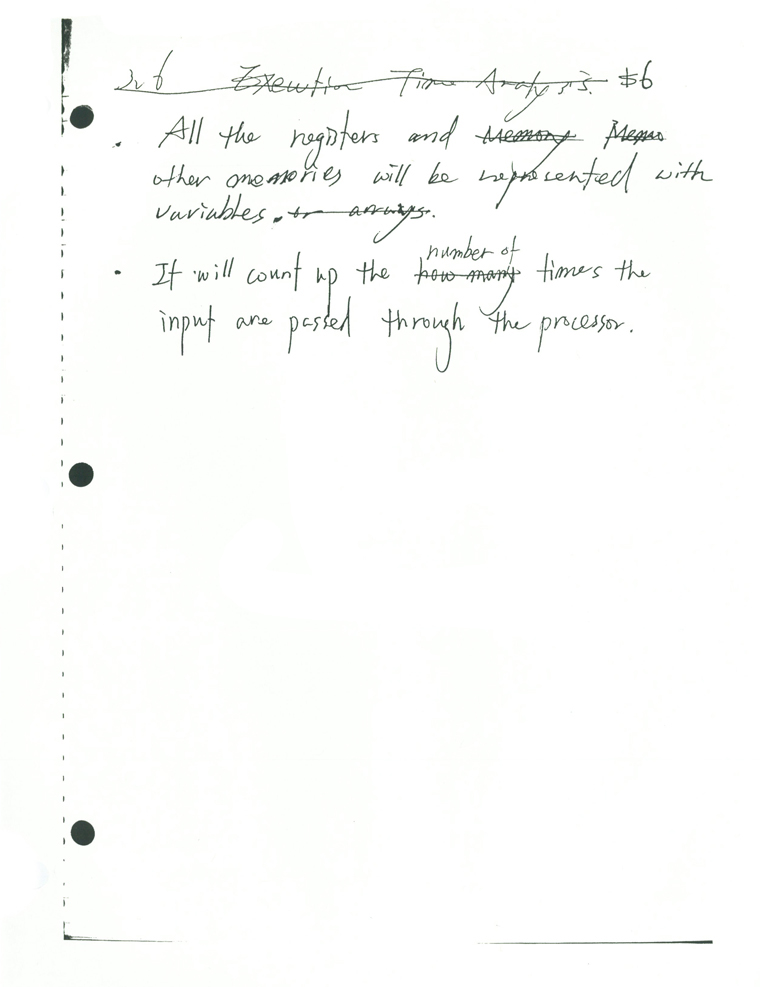 3.6 Execution Time Analysis. $6
. All the registers and Memory Memo
other memories will be represented with
variables. or arrays.
number of
. It will count up the how many times the
input are passed through the processor.